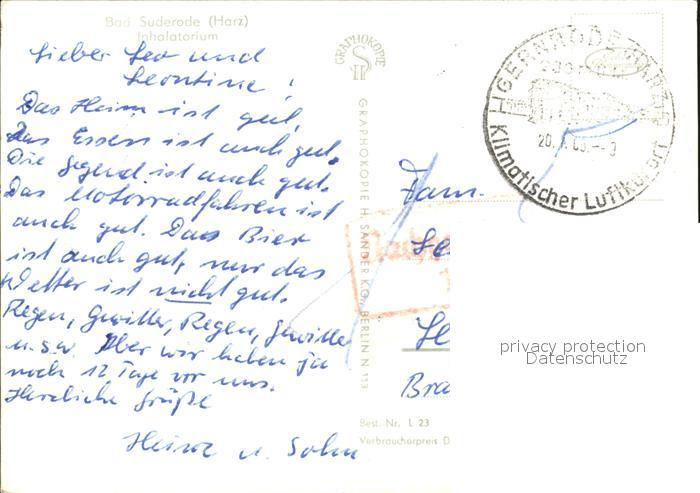 Bad Suderode (Harz)
Inhalatorium
Lieber Leo und
Leontine!
Das Heim ist gut,
Das Essen ist auch gut.
Die Gegend ist auch gut.
Das Motorradfahren ist
auch gut. Das Bier
ist auch gut, nur das
Wetter ist nicht gut.
Regen, Gewitter, Regen, Gewitter
u.s.w. Aber wir haben ja
noch 12 Tage vor uns.
Herzliche Grüße
Heinz u. Sohn
GRAPHOKOPIE
GRAPHOKOPIE H. SANDER KG., BERLIN N 113
GERNRODE (HARZ)
Klimatischer Luftkurort
Fam.
Le
Le
Bra
privacy protection
Datenschutz
Best.-Nr. L 23
Verbraucherpreis D